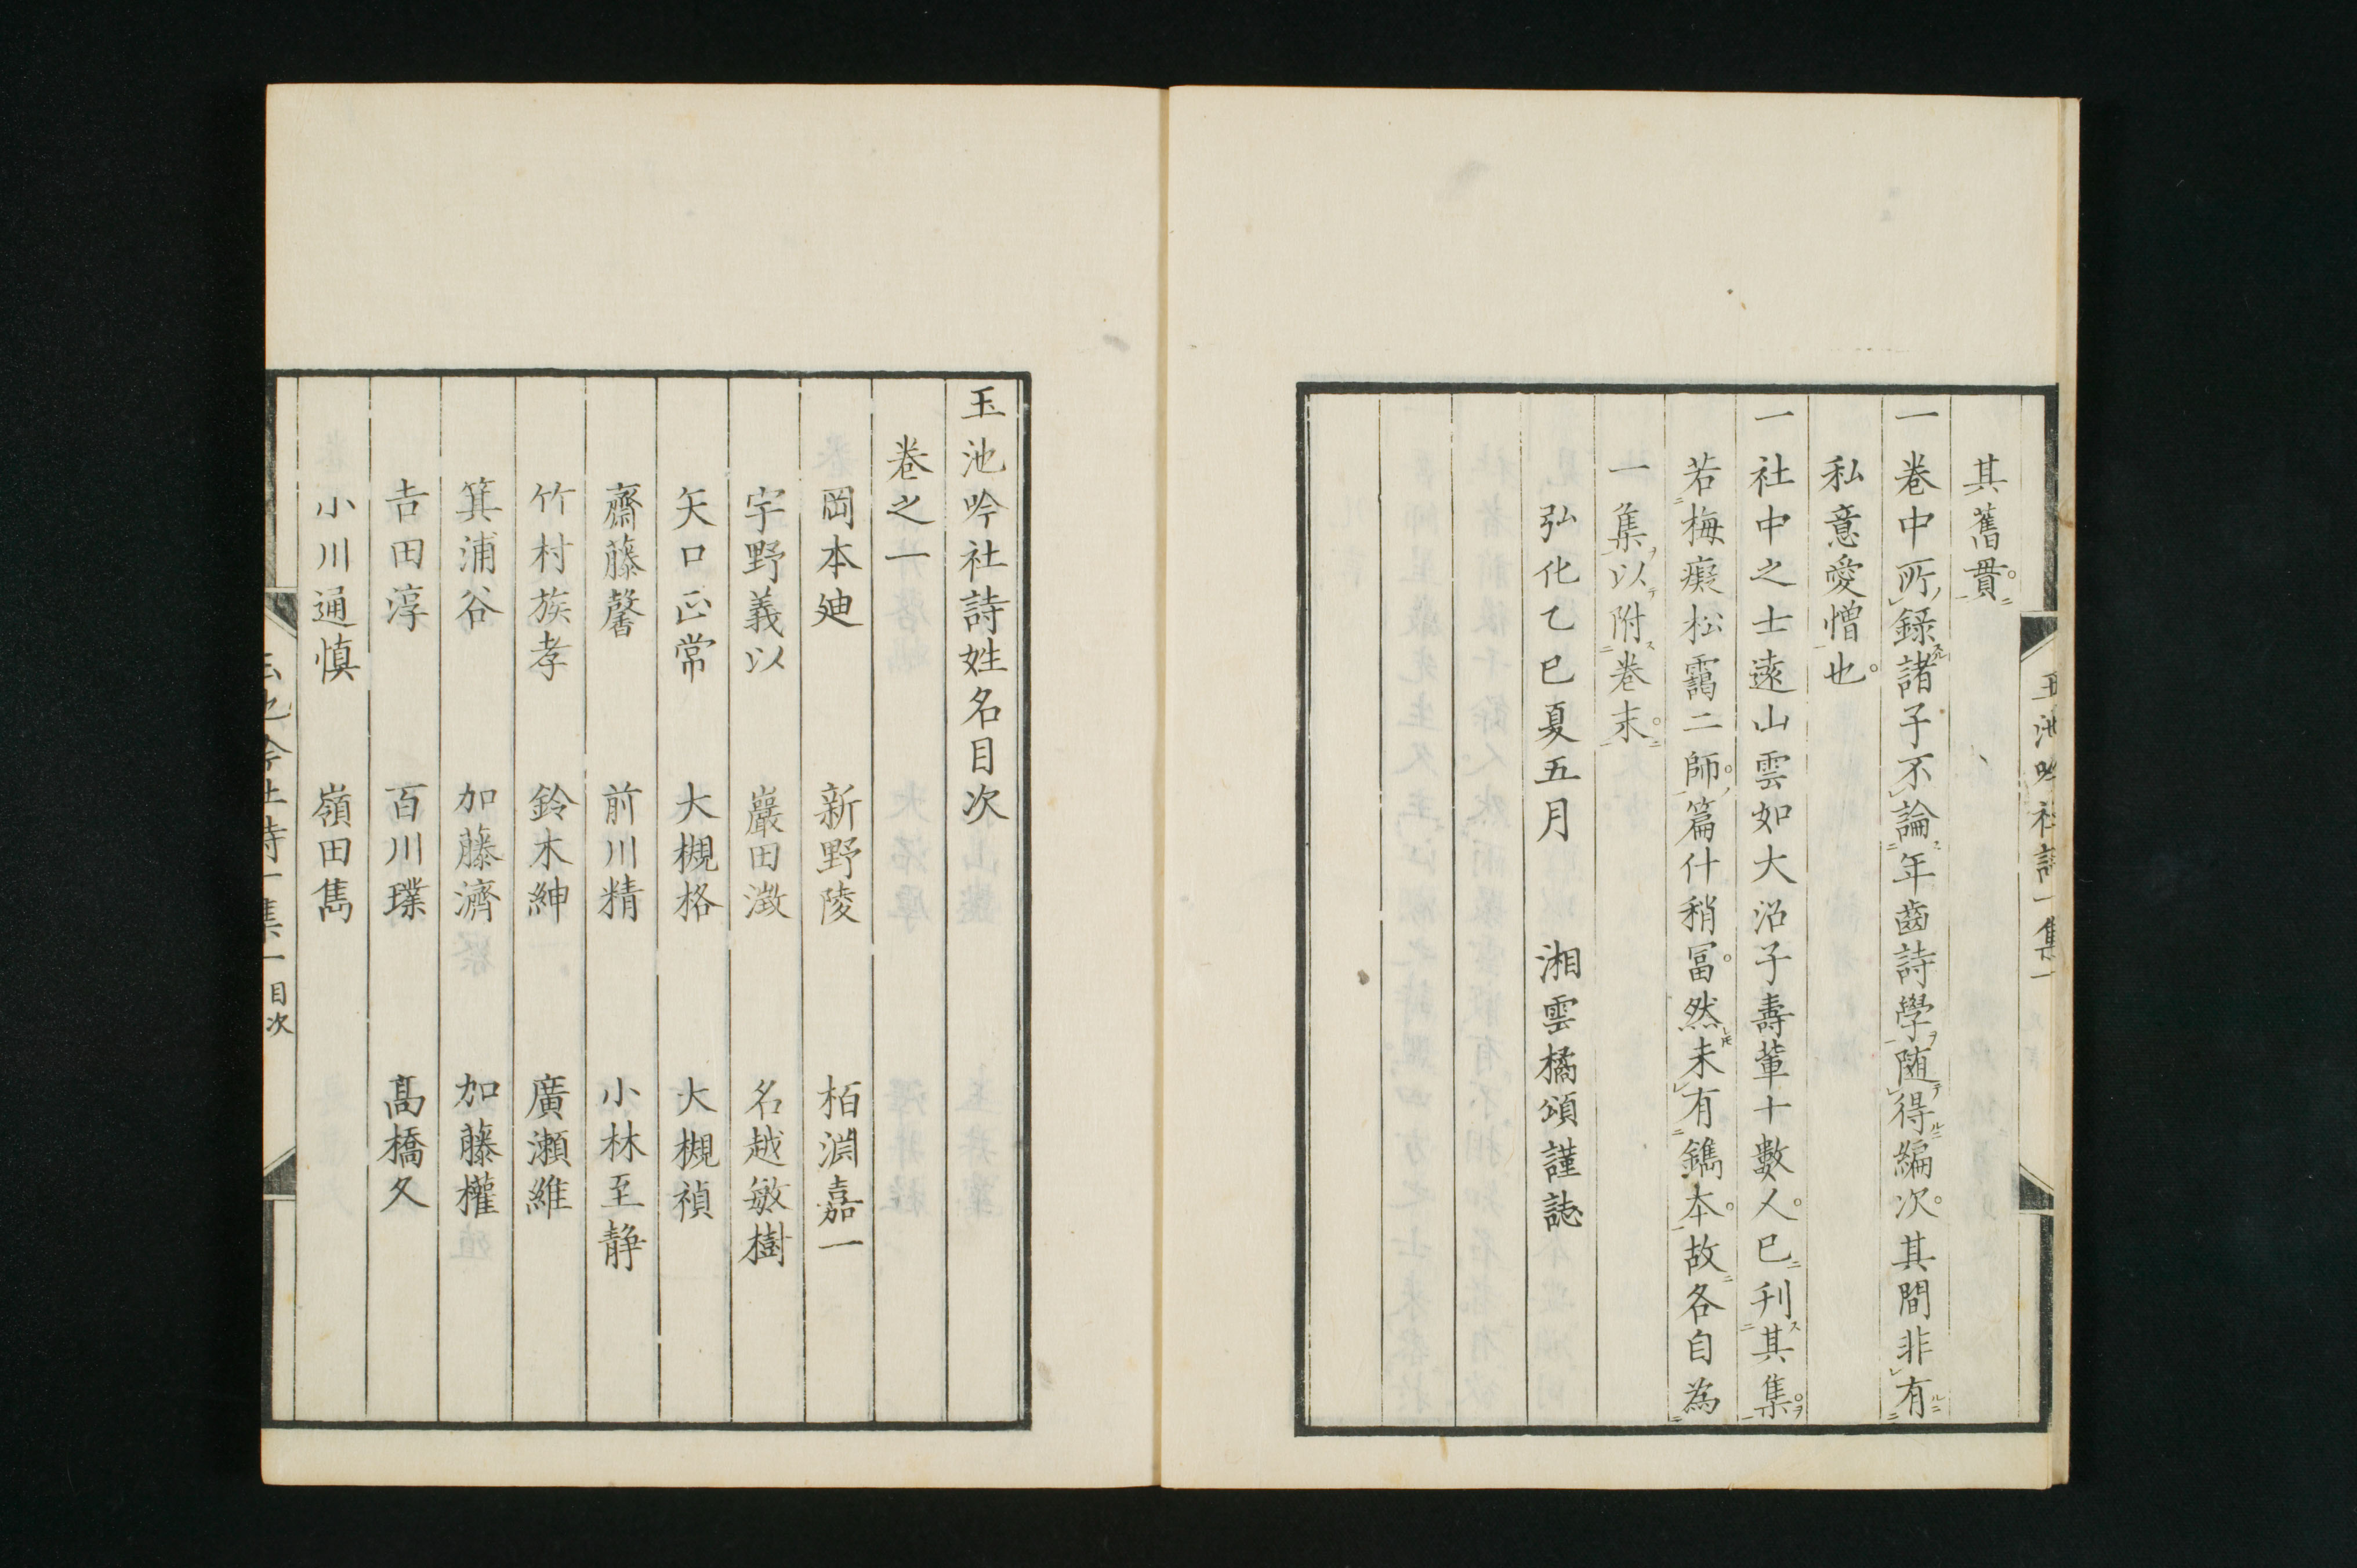 其舊貫。
一巻中所録諸子不論年齒詩學随得編次。其間非有
私意愛憎也。
一社中之士遠山雲如大沼子壽輩十數人。巳刊其集。
若梅癡松靄二師。篇什稍冨。然未有鐫本。故各自為
一集以附巻末。
弘化乙巳夏五月　湘雲橘頌謹誌
玉池吟社詩姓名目次
巻之一
岡本廸　新野陵　栢淵嘉一
宇野義以　巖田澂　名越敏樹
矢口正常　大槻格　大槻禎
齋藤馨　前川精　小林至静
竹村族孝　鈴木紳　廣瀬維
箕浦谷　加藤濟　加藤權
吉田淳　百川璞　髙橋久
小川通慎　嶺田雋
玉池吟社詩一集一
玉池吟社詩一集一目次